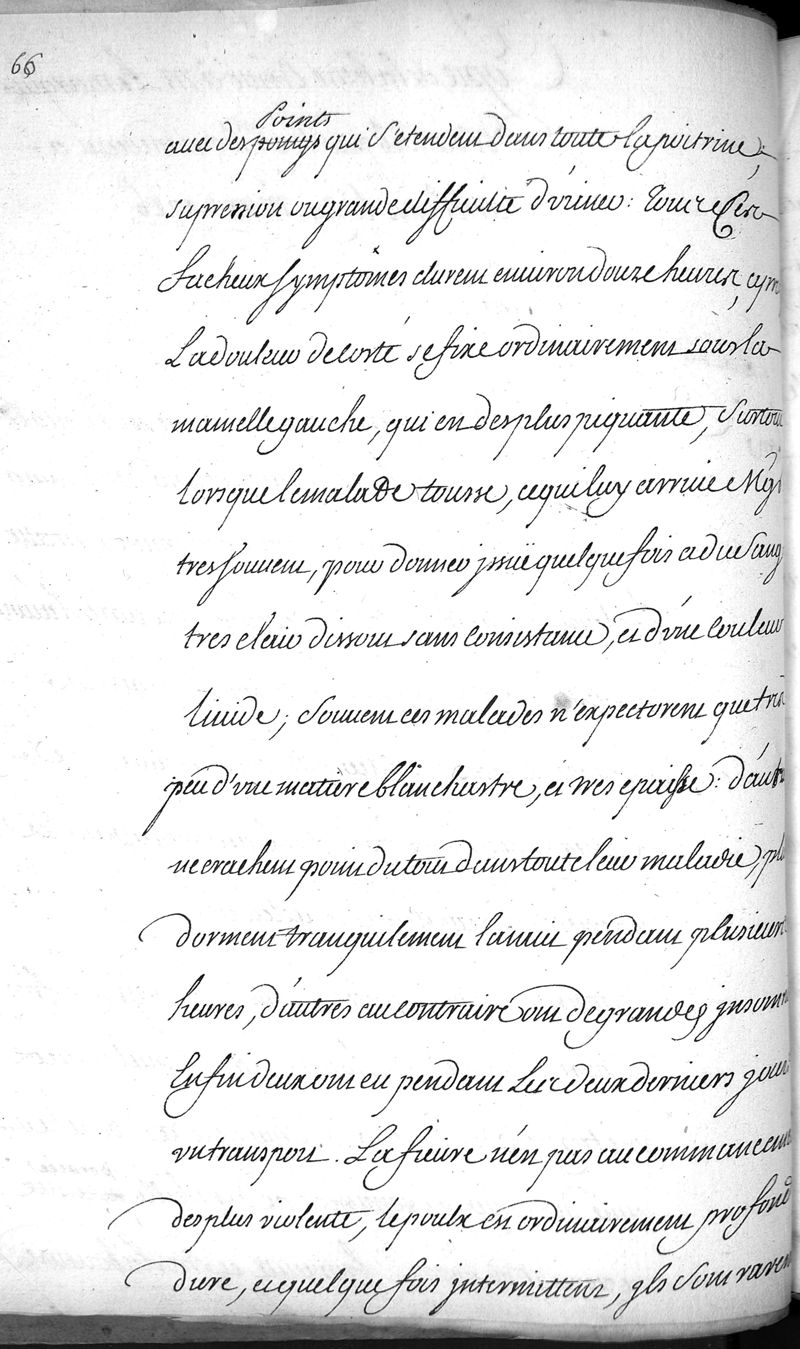 66
Points
avec des poings qui s'etendent dans toute la poitrine;
supression ou grande difficulté d'vriner: Tous ces
facheux symptômes durent environ douze heures,
La douleur de costé se fixe ordinairement sous la
mamelle gauche, qui est des plus piquante, surtout
lorsque le malade tousse, ce qui luy arrive
tres souvent, pour donner jssuë quelque fois a du sang
tres clair dissout sans consistance, et d'vne couleur
livide; souvent ces malades n'expectorent que tres
peu d'vne matiere blanchastre, et tres epaisse: d'autres
ne crachent point du tout dans toute leur maladie,
dorment tranquilement la nuit pendant plusieurs
heures, d'autres au contraire ont de grandes jnsomn
Enfin deux ont eu pendant les deux derniers jours
vn transport. La fievre n'est pas au commancem
des plus violente, le poulx est ordinairement profond
dure, et quelque fois jntermittent, jls sont rarem